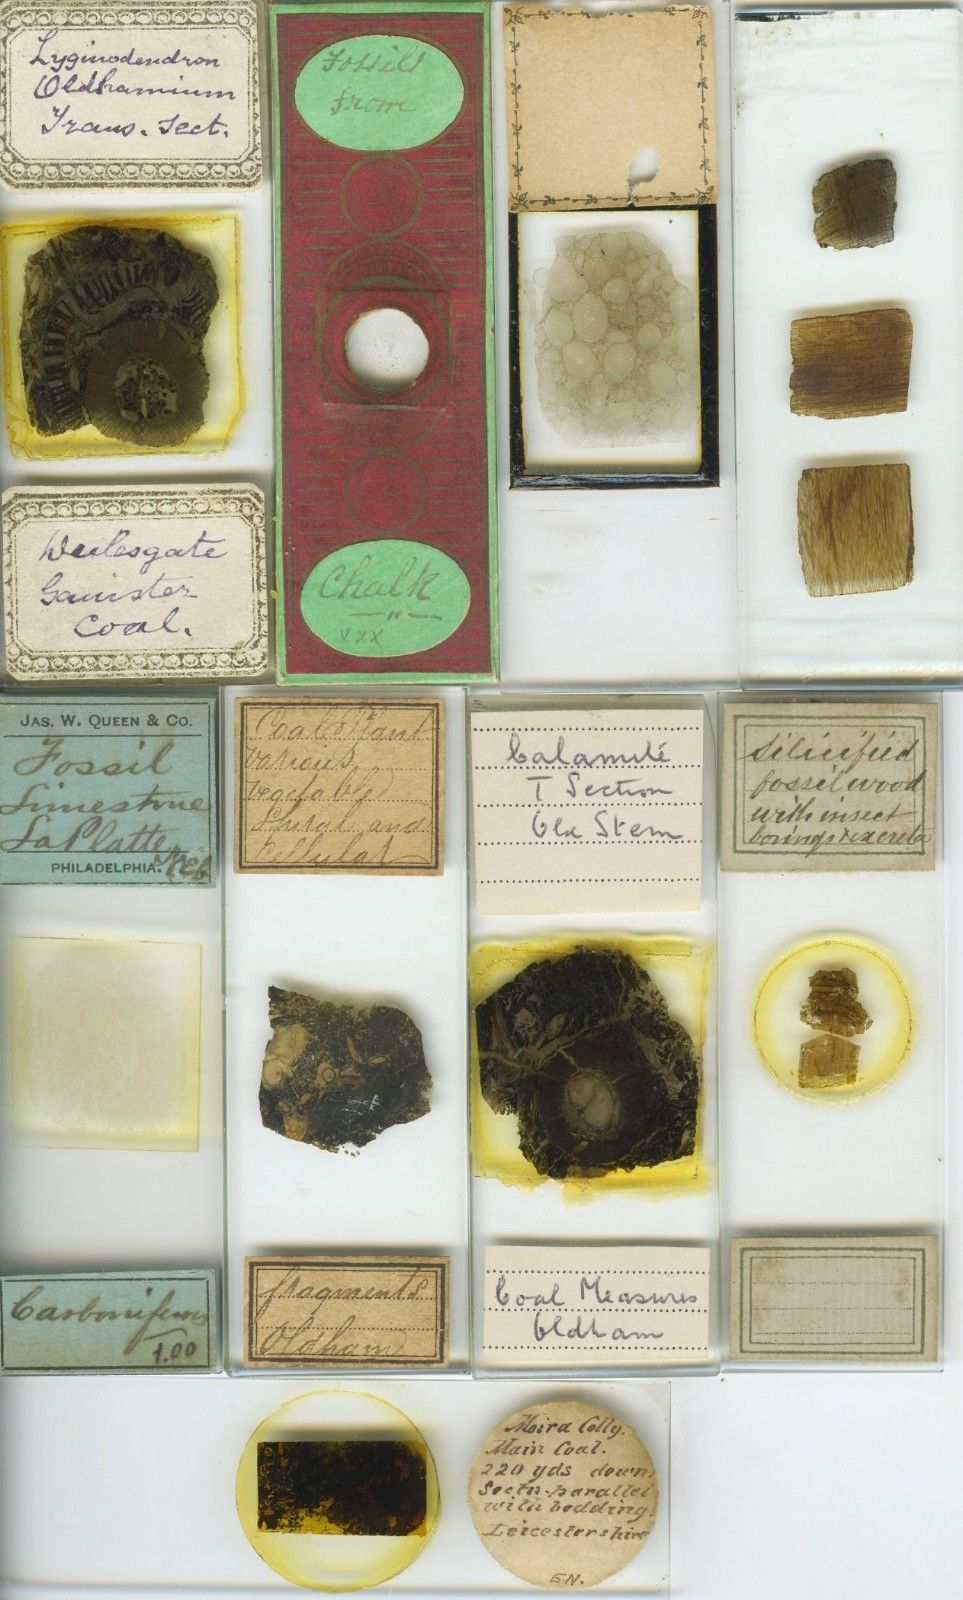 Lyginodendron
Oldhamium
Trans. Sect.
Ganister
Coal.
Fossils
from
Chalk
xxx
JAS. W. QUEEN & CO.
Fossil
Limestone
La Platte,
PHILADELPHIA. Neb
Carboniferous
1.00
Coal Plant
various
vegetable
Spiral and
Cellular
fragments
Oldham
Calamite
T Section
Old Stem
Coal Measures
Oldham
Silicified
fossil wood
with insect
borings & excreta
Moira Colly.
Main Coal.
220 yds down,
Sectn. parallel
with bedding.
Leicestershire
E.N.